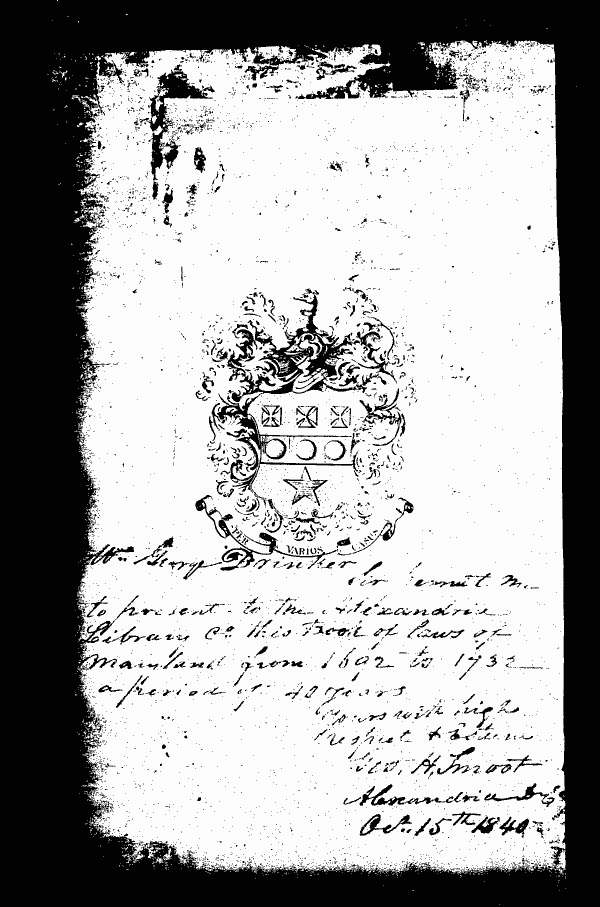 PER VARIOS CASUS
George Brinker
Sir permit me
to present to the Alexandria
Library Co. this Book of Laws of
Maryland from 1692 to 1732
a period of 40 years
Yours with high
respect & Esteem
Geo. H. Smoot
Alexandria
Oct. 15th 1840